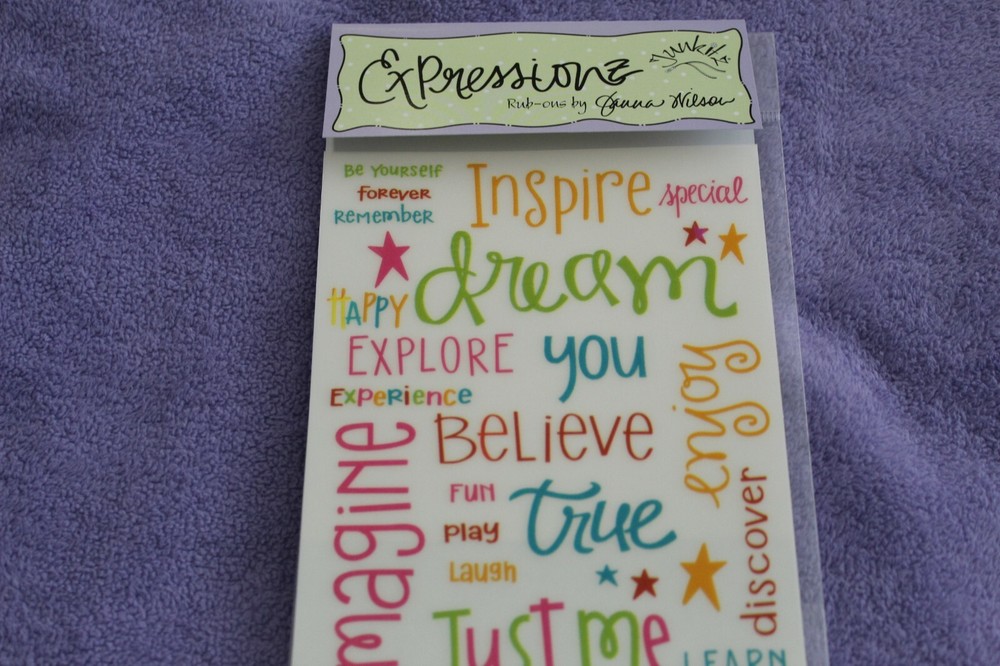 ExPressionz
Junkitz
Rub-ons by Janna Wilson
Be Yourself
forever
Remember
Inspire
special
dream
HAPPY
EXPLORE
you
Experience
enjoy
Believe
Imagine
FUN
true
Play
discover
Laugh
Just me
LEARN